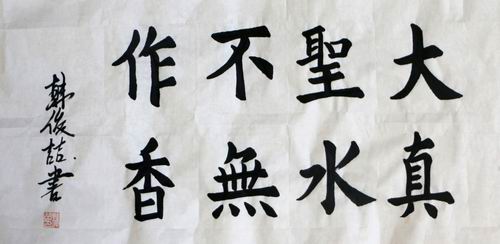 大真
聖水
不無
作香
韩俊喆書